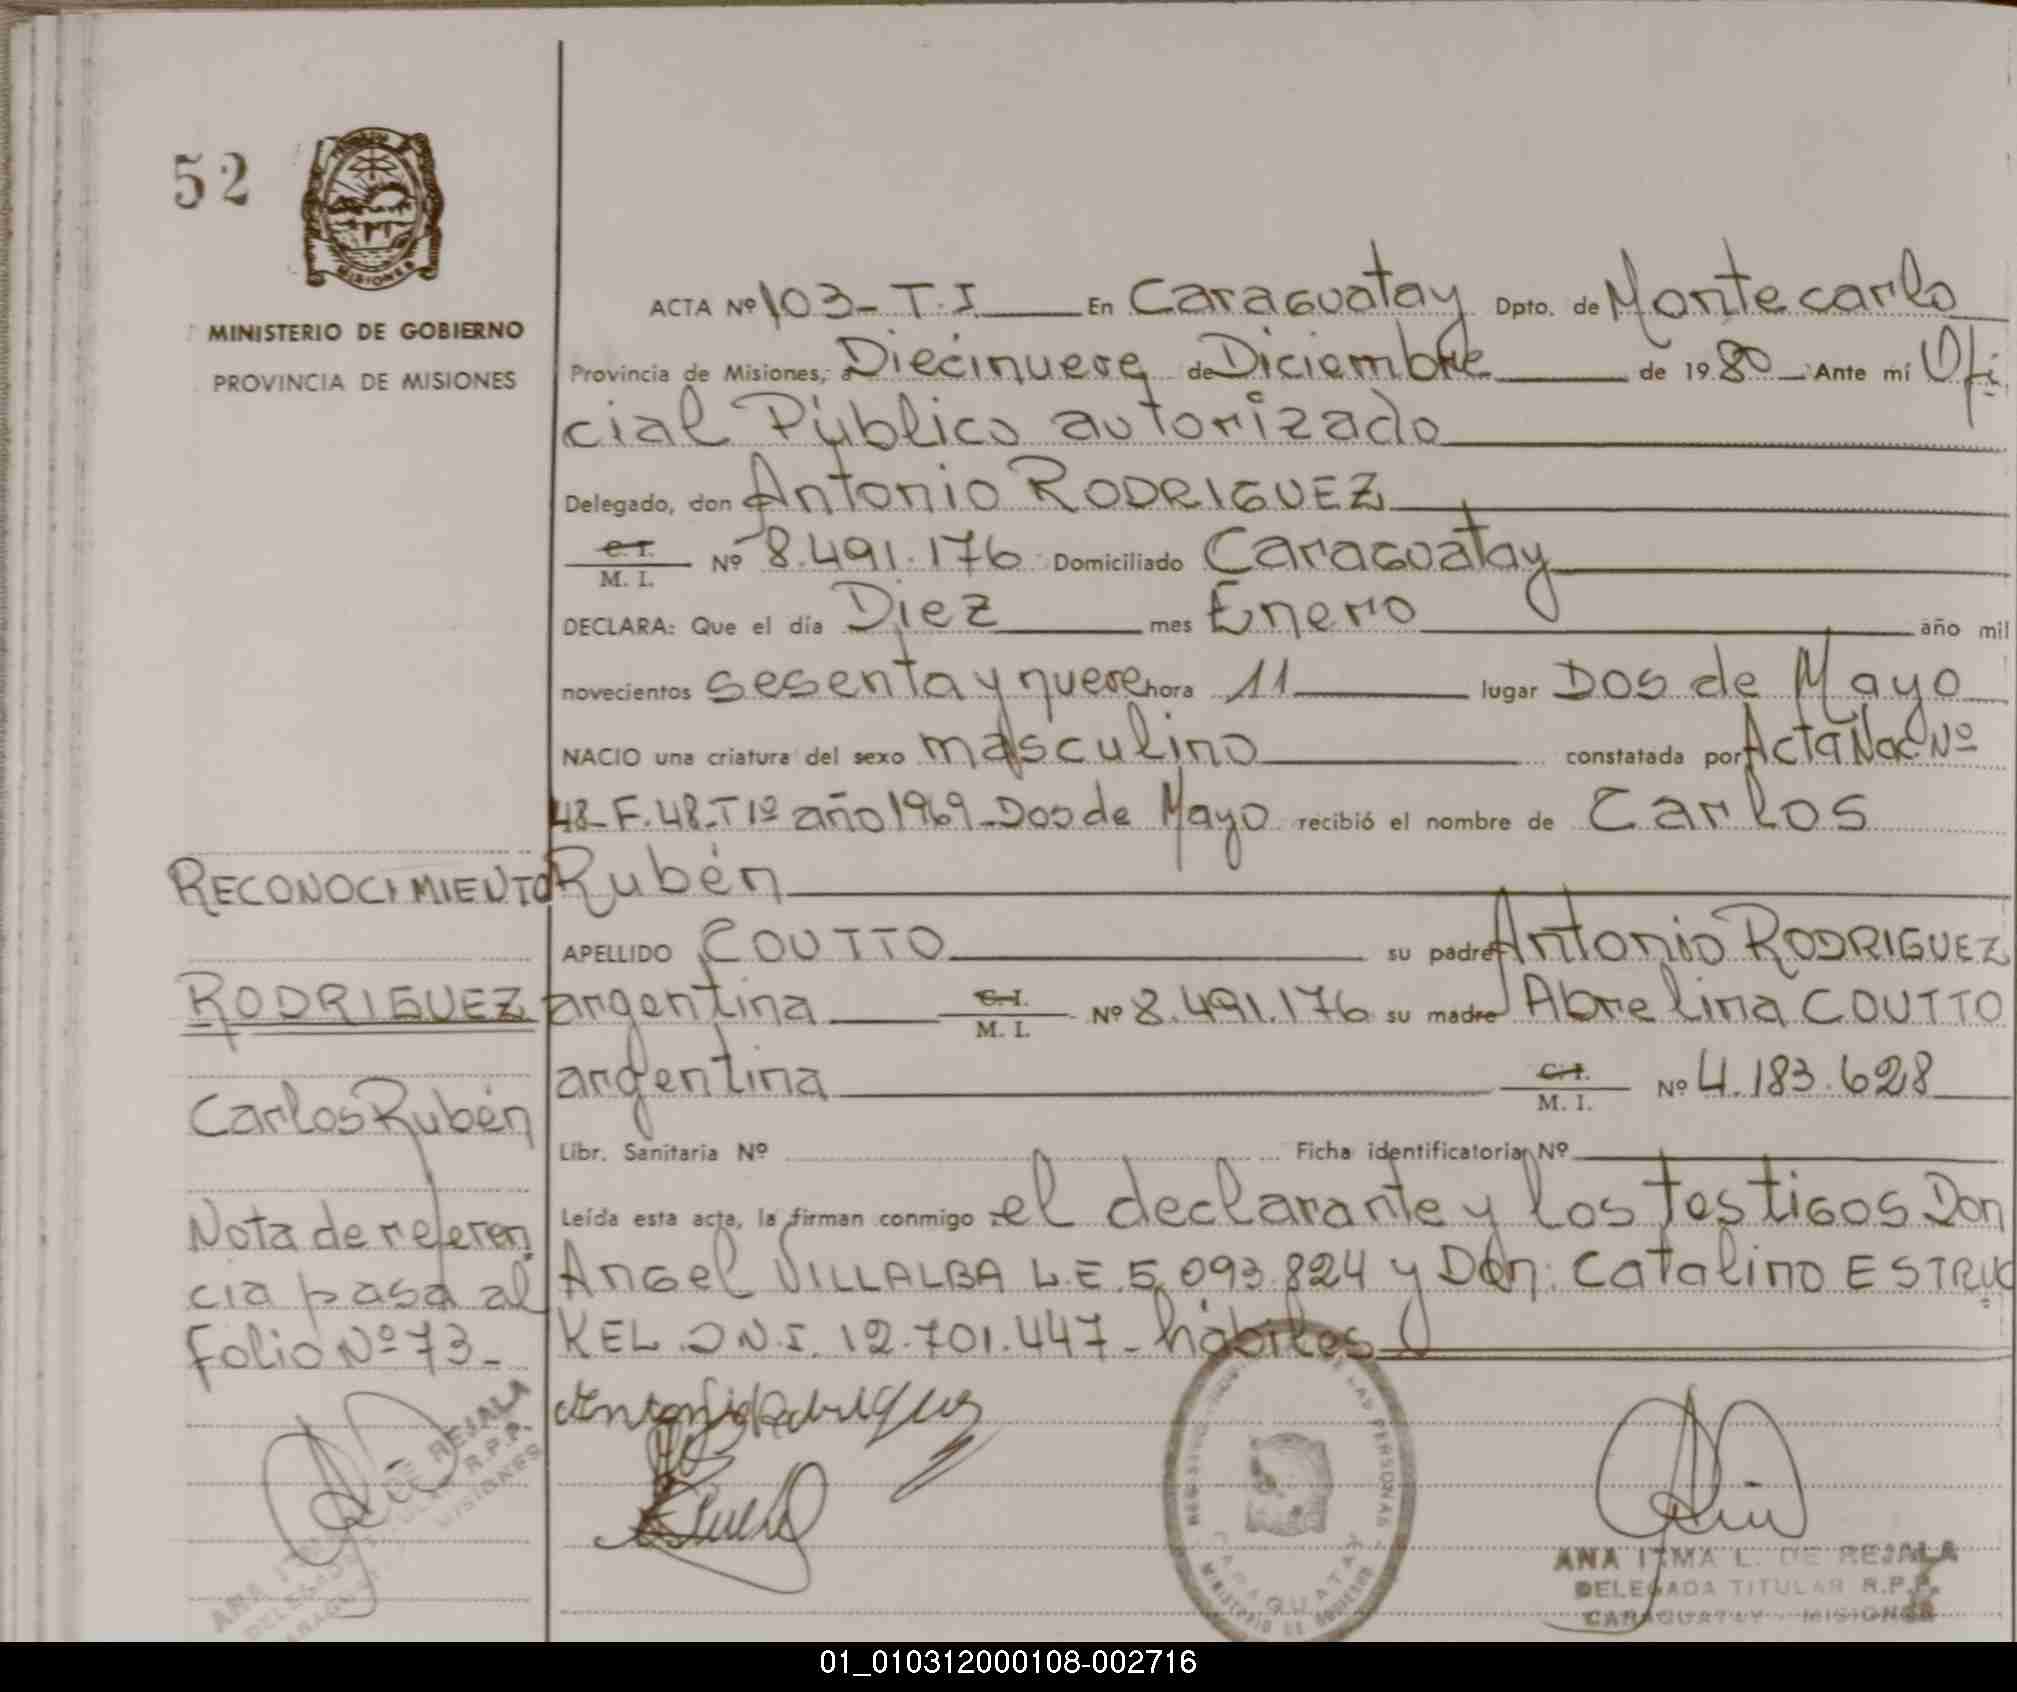 52
MISIONES
MINISTERIO DE GOBIERNO
PROVINCIA DE MISIONES
ACTA Nº 103 - T. I En Caraguatay Dpto. de Montecarlo
Provincia de Misiones, a Diecinueve de Diciembre de 1980 Ante mí Ofi
cial Público autorizado
Delegado, don Antonio RODRIGUEZ
C.I.
M. I. Nº 8.491.176 Domiciliado Caraguatay
DECLARA: Que el día Diez mes Enero año mil
novecientos sesenta y nueve hora 11 lugar Dos de Mayo
NACIO una criatura del sexo masculino constatada por Acta Nac. Nº
48 - F. 48 - T 1º año 1969 - Dos de Mayo recibió el nombre de Carlos
Rubén
APELLIDO COUTTO su padre Antonio RODRIGUEZ
argentina C.I.
M. I. Nº 8.491.176 su madre Abrelina COUTTO
argentina C.I.
M. I. Nº 4.183.628
Libr. Sanitaria Nº Ficha identificatoria Nº
Leída esta acta, la firman conmigo el declarante y los testigos Don
Angel VILLALBA L.E. 5.093.824 y Don: Catalino ESTRUC
KEL D N.I. 12.701.447 - hábiles
RECONOCIMIENTO
RODRIGUEZ
Carlos Rubén
Nota de referen
cia pasa al
folio Nº 73 -
Antonio Rodriguez
DE LAS PERSONAS
CARAGUATAY
MINISTERIO DE GOBIERNO
ANA IRMA L. DE REJALA
DELEGADA TITULAR R.P.P.
CARAGUATAY - MISIONES
ANA DE REJALA
R.P.P.
MISIONES
01_010312000108-002716